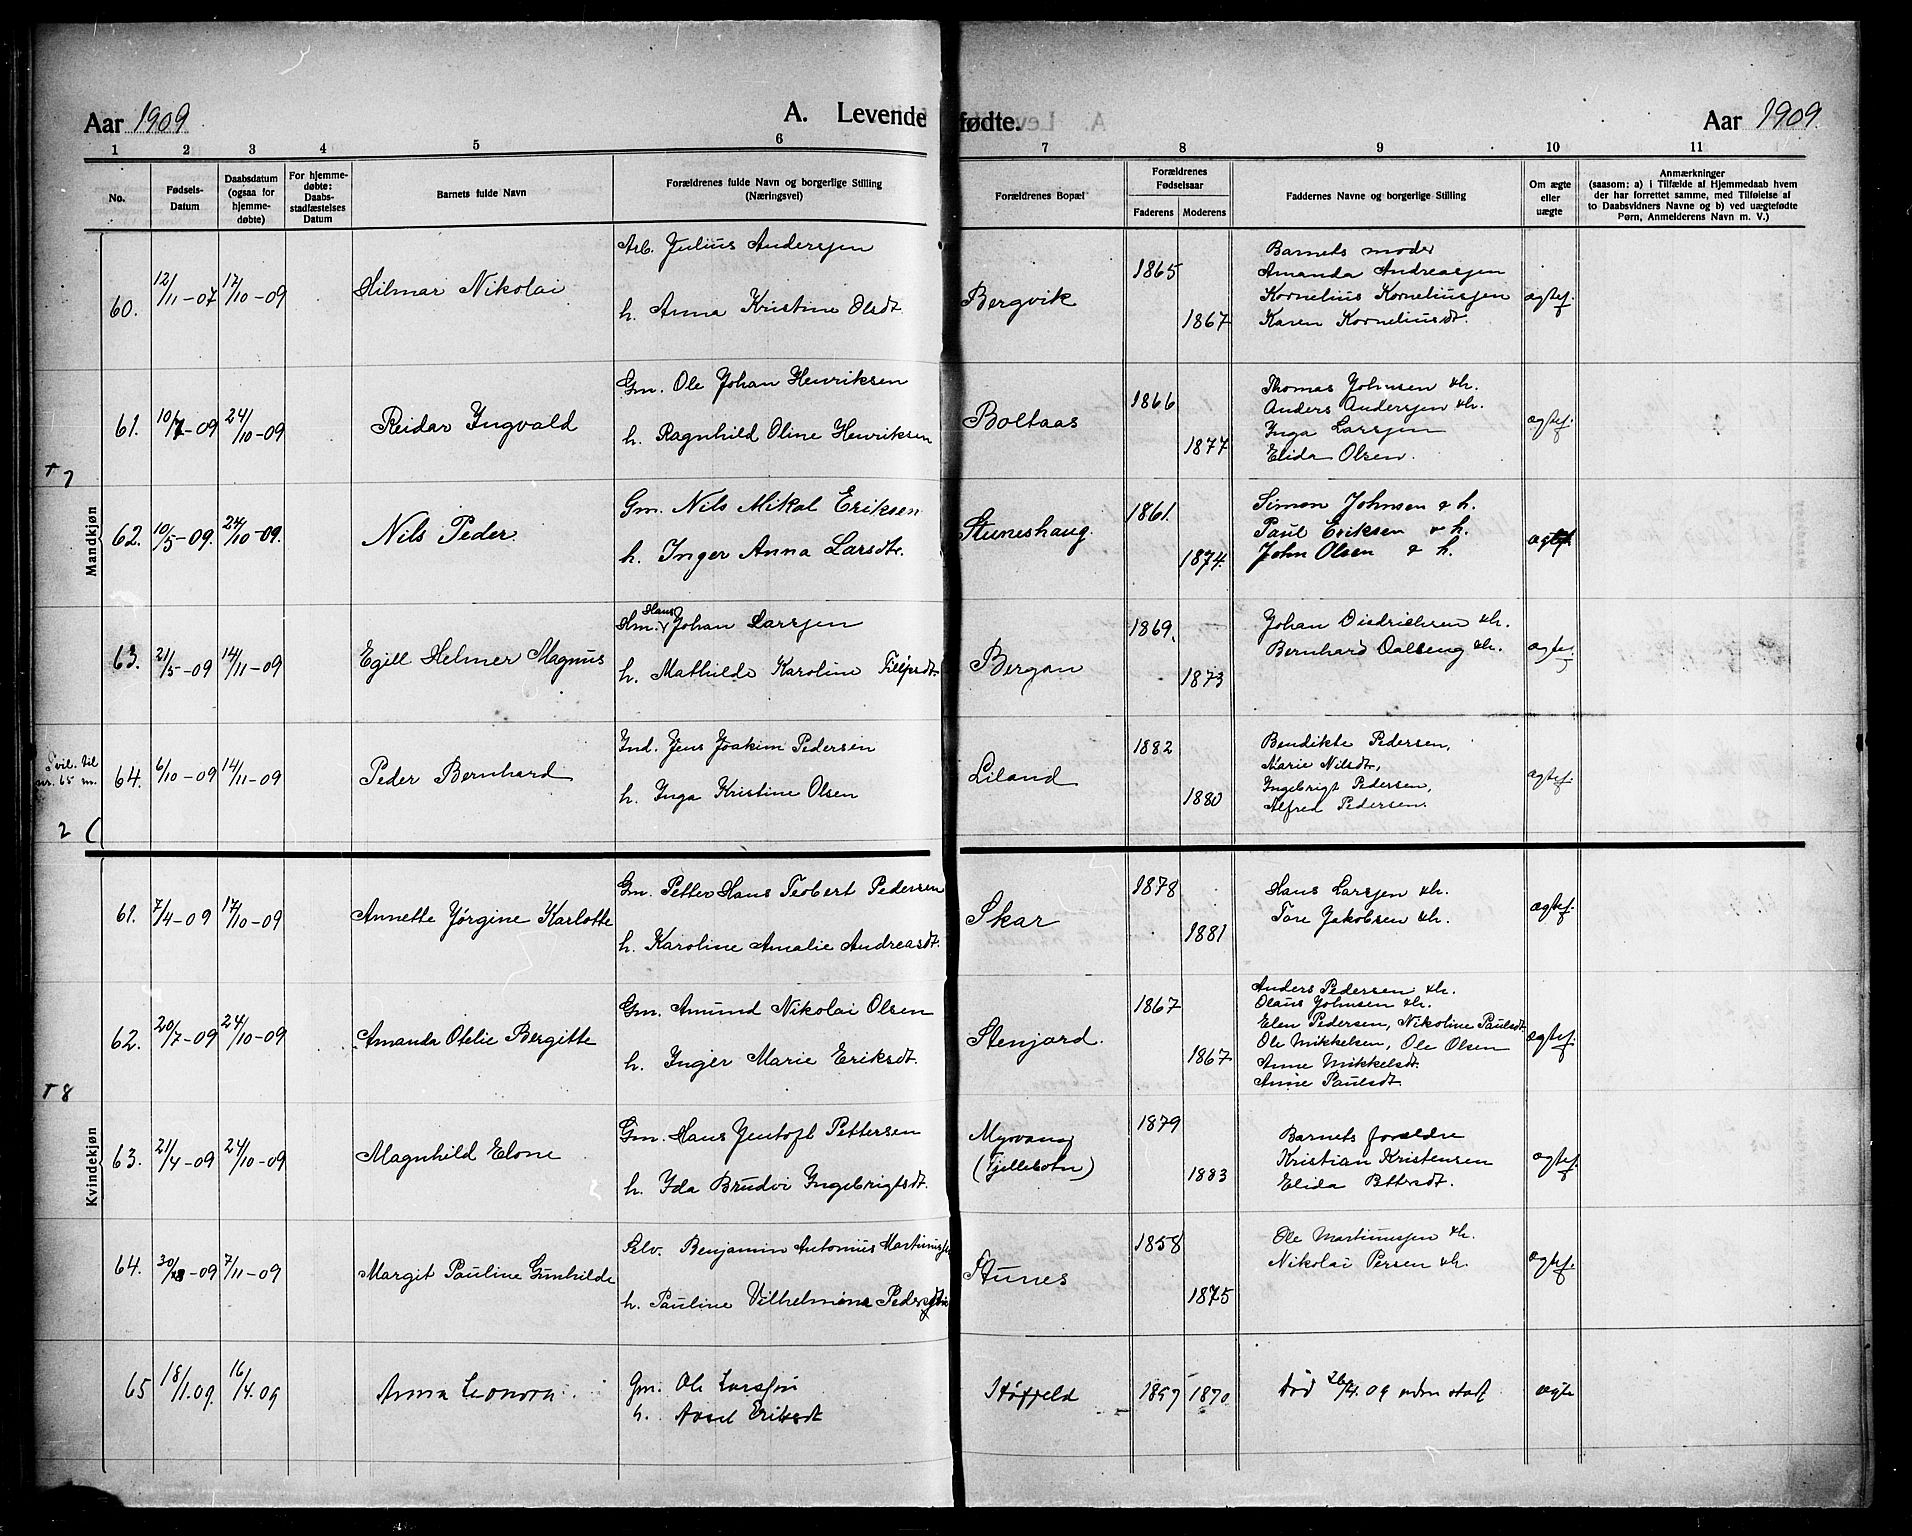 Aar 1909
A. Levende fødte.
Aar 1909.
1 2 3 4 5 6 7 8 9 10 11
No.
Fødsels-
Datum
Daabsdatum
(ogsaa for
hjemme-
døbte)
For hjemme-
døbte:
Daabs-
stadfæstelses
Datum
Barnets fulde Navn
Forældrenes fulde Navn og borgerlige Stilling
(Næringsvei)
Forældrenes Bopæl
Forældrenes
Fødselsaar
Faderens Moderens
Faddernes Navne og borgerlige Stilling
Om ægte
eller
uægte
Anmærkninger
(saasom: a) i Tilfælde af Hjemmedaab hvem
der har forrettet samme, med Tilføielse af
to Daabsvidners Navne og b) ved uægtefødte
Pørn, Anmelderens Navn m. V.)
Mandkjøn
60. 12/11-07 17/10-09 Hilmar Nikolai
Arb. Julius Andersjen
h. Anna Kristine Olsdt.
Bergvik
1865
1867
Barnets moder
Amanda Andreasjen
Kornelius Korneliusjen
Karen Korneliusdt.
ægtef.
61. 10/7-09 24/10-09 Reidar Ingvald
Gm. Ole Johan Henriksen
h. Ragnhild Oline Henriksen
Boltaas
1866
1877
Thomas Johnsen &h.
Anders Andersjen &h.
Inga Larsjen
Elida Olsen.
ægtef.
+ 7
62. 10/5-09. 24/10-09. Nils Peder.
Gm. Nils Mikal Eriksen
h. Inger Anna Larsdtr.
Stuneshaug.
1861.
1874.
Simon Johnsen & h.
Paul Eriksen & h.
John Olsen & h.
ægtef.
63. 21/5-09 14/11-09 Egill Helmer Magnus
Hans
Gm. Johan Larsjen
h. Mathilde Karoline
Bergan
1869.
1873
Johan Didriehsen &h.
Bernhard Aalseng &h.
ægtef.
nr. 65 m.
64. 6/10-09 14/11-09 Peder Bernhard
Ind. Jens Joakim Pedersen
h. Inga Kristine Olsen
Liland
1882
1880
Bendikte Pedersen,
Marie Nilsdt,
Ingebrigt Pedersen,
Alfred Pedersen.
ægtef.
2 (
Kvindekjøn
61. 7/4-09 17/10-09 Annette Jørgine Karlotte
Gm. Petter Hans Teobert Pedersen
h. Karoline Amalie Andreasdt.
Skar
1878
1881
Hans Larsjen &h.
Tore Jakobsen &h.
ægtef.
62. 20/7-09 24/10-09 Amanda Otelie Bergitte
Gm. Amund Nikolai Olsen
h. Inger Marie Eriksdt.
Stenjord.
1867
1867
Anders Pedersen &h.
Olaus Johnsen &h.
Elen Pedersen, Nikoline Paulsdt.
Ole Mikkelsen, Ole Olsen
Anne Mikkelsdt.
Anne Paulsdt.
ægtef.
+ 8
63. 21/4-09 24/10-09 Magnhild Elone
Gm. Hans Jentoft Pettersen
h. Ida Brudvi Ingebrigtsdt.
Myrvang
(Fjellbotn)
1879
1883
Barnets forældre
Kristian Kristensen
Elida Pettersdt.
ægtef.
64. -09 7/11-09 Margit Pauline Gunhilde
Selv. Benjamin Antonius
h. Pauline Vilhelmine
Stunes
1858
1875
Ole Martinusjen &h.
Nikolai Persen &h.
ægtef.
65 18/1.09. 16/4.09 Anna Leonora
Gm. Ole Larsjen
h. Eriksdt
1870
død 26/4.09 uden daab
ægte